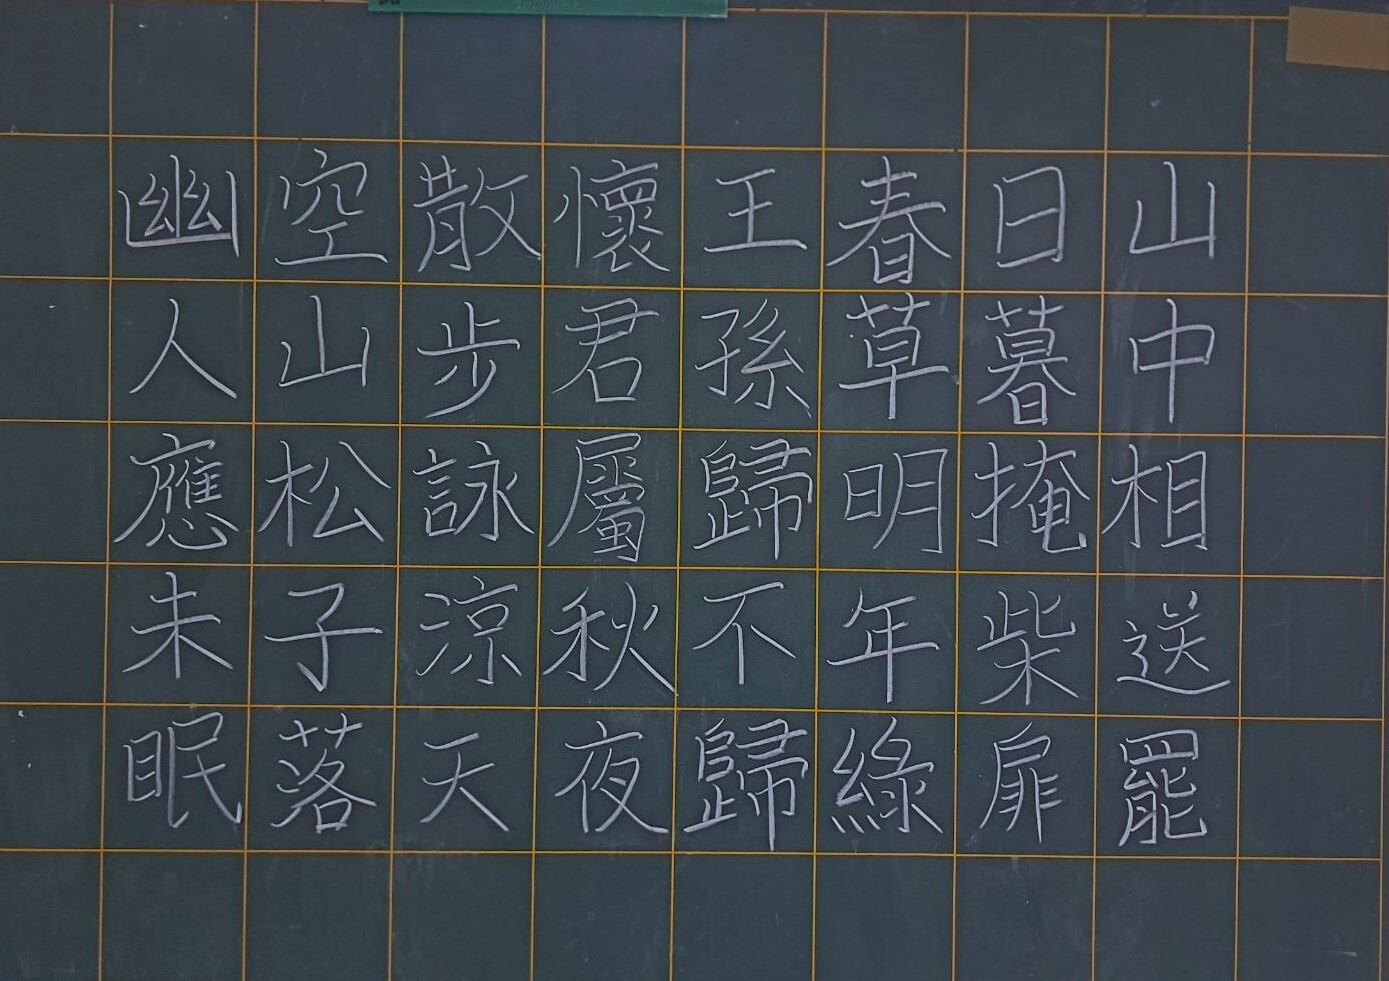 山中相送罷
日暮掩柴扉
春草明年綠
王孫歸不歸
懷君屬秋夜
散步詠涼天
空山松子落
幽人應未眠